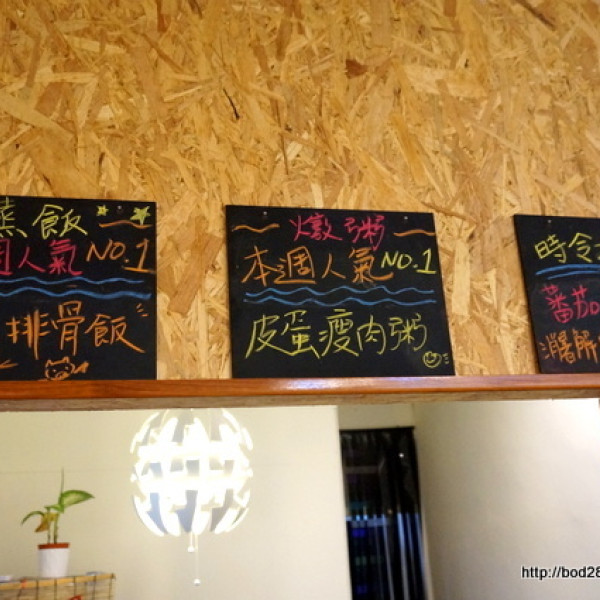 蒸飯
週人氣 NO.1
排骨飯
燉粥
本週人氣 NO.1
皮蛋瘦肉粥
時令
蕃茄
消暑解
http://bod28